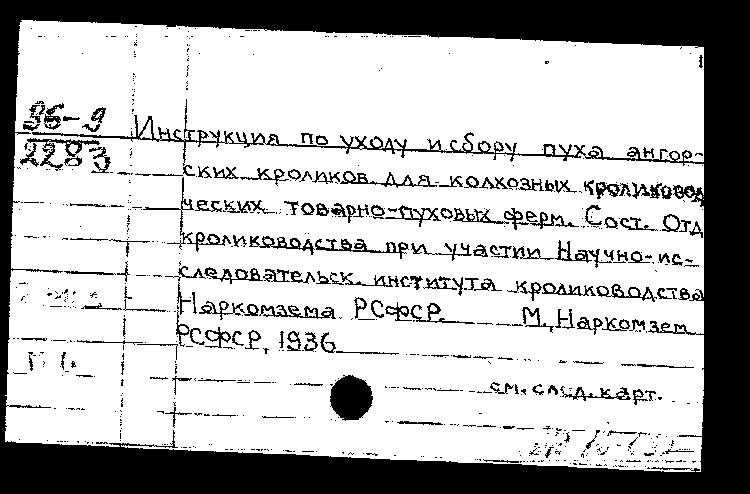 36-9
2283
Инструкция по уходу и сбору пуха ангор-
ских кроликов для колхозных кроликовод
ческих товарно-пуховых ферм. Сост. Отд
кролиководства при участии Научно-ис-
следовательск. института кролиководства
Наркомзема РСФСР. М., Наркомзем
РСФСР, 1936
см. след. карт.